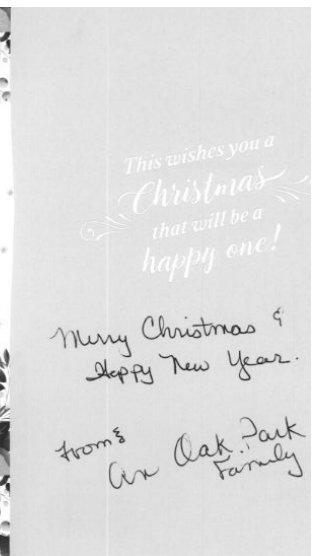 This wishes you a
Christmas
that will be a
happy one!
Merry Christmas &
Happy New Year.
From:
An Oak Park
Family